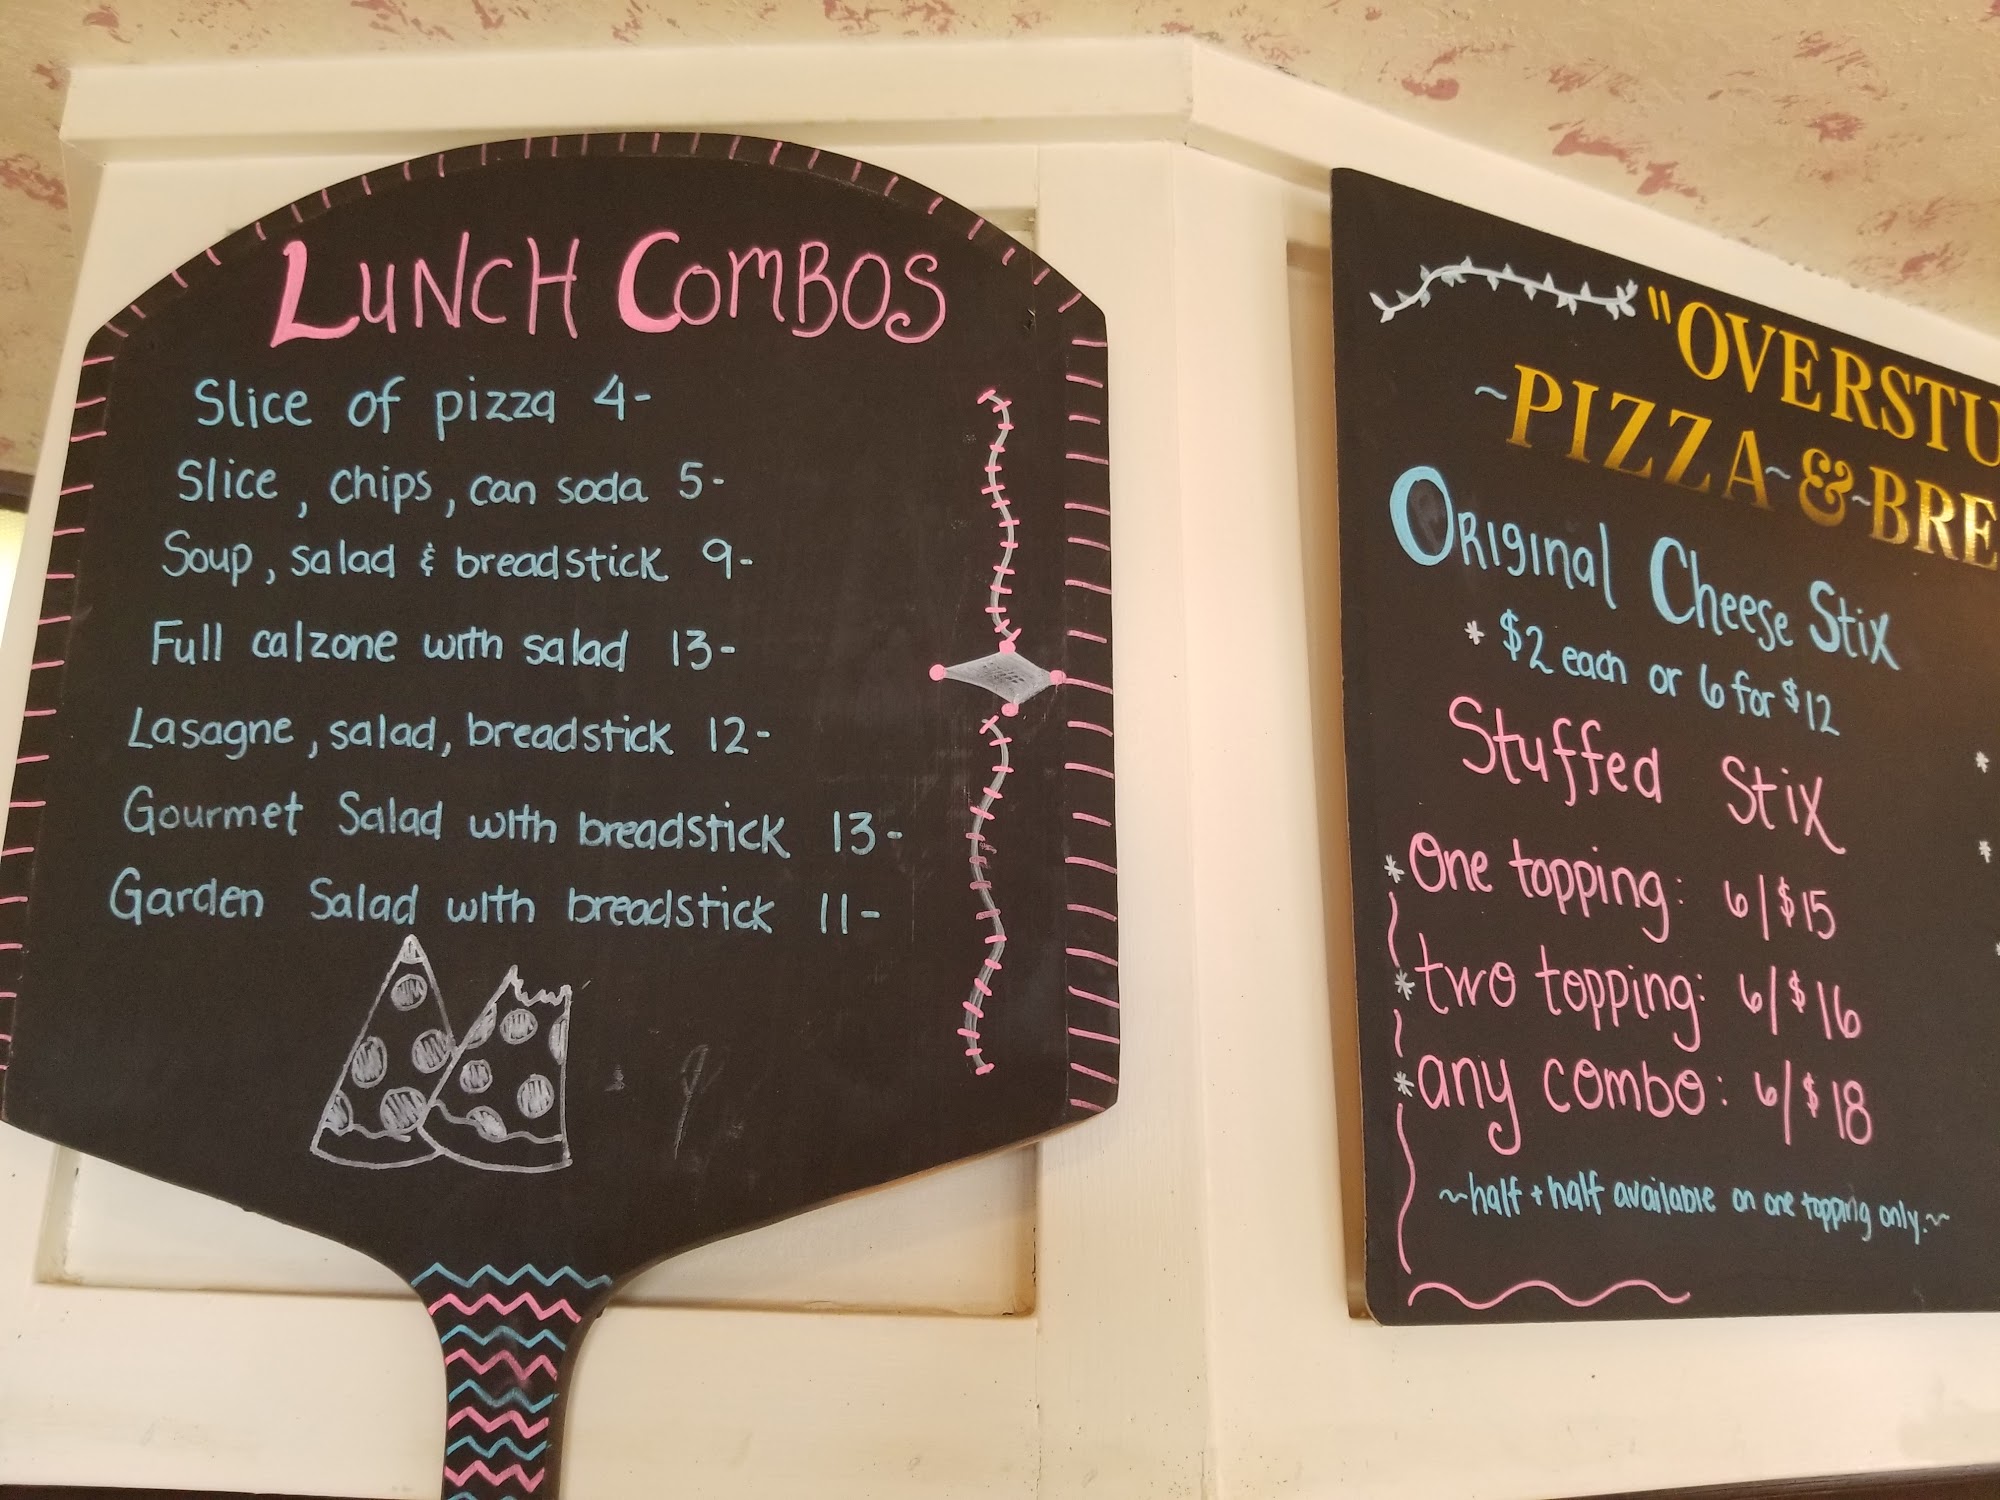 LUNCH COMBOS
Slice of pizza 4-
Slice, chips, can soda 5-
Soup, salad & breadstick 9-
Full calzone with salad 13-
Lasagne, salad, breadstick 12-
Gourmet Salad with breadstick 13-
Garden Salad with breadstick 11-
"OVERSTU
~PIZZA~&~BRE
Original Cheese Stix
* $2 each or 6 for $12
Stuffed Stix
*One topping: 6/$15
*two topping: 6/$16
*any combo: 6/$18
~half + half available on one topping only.~